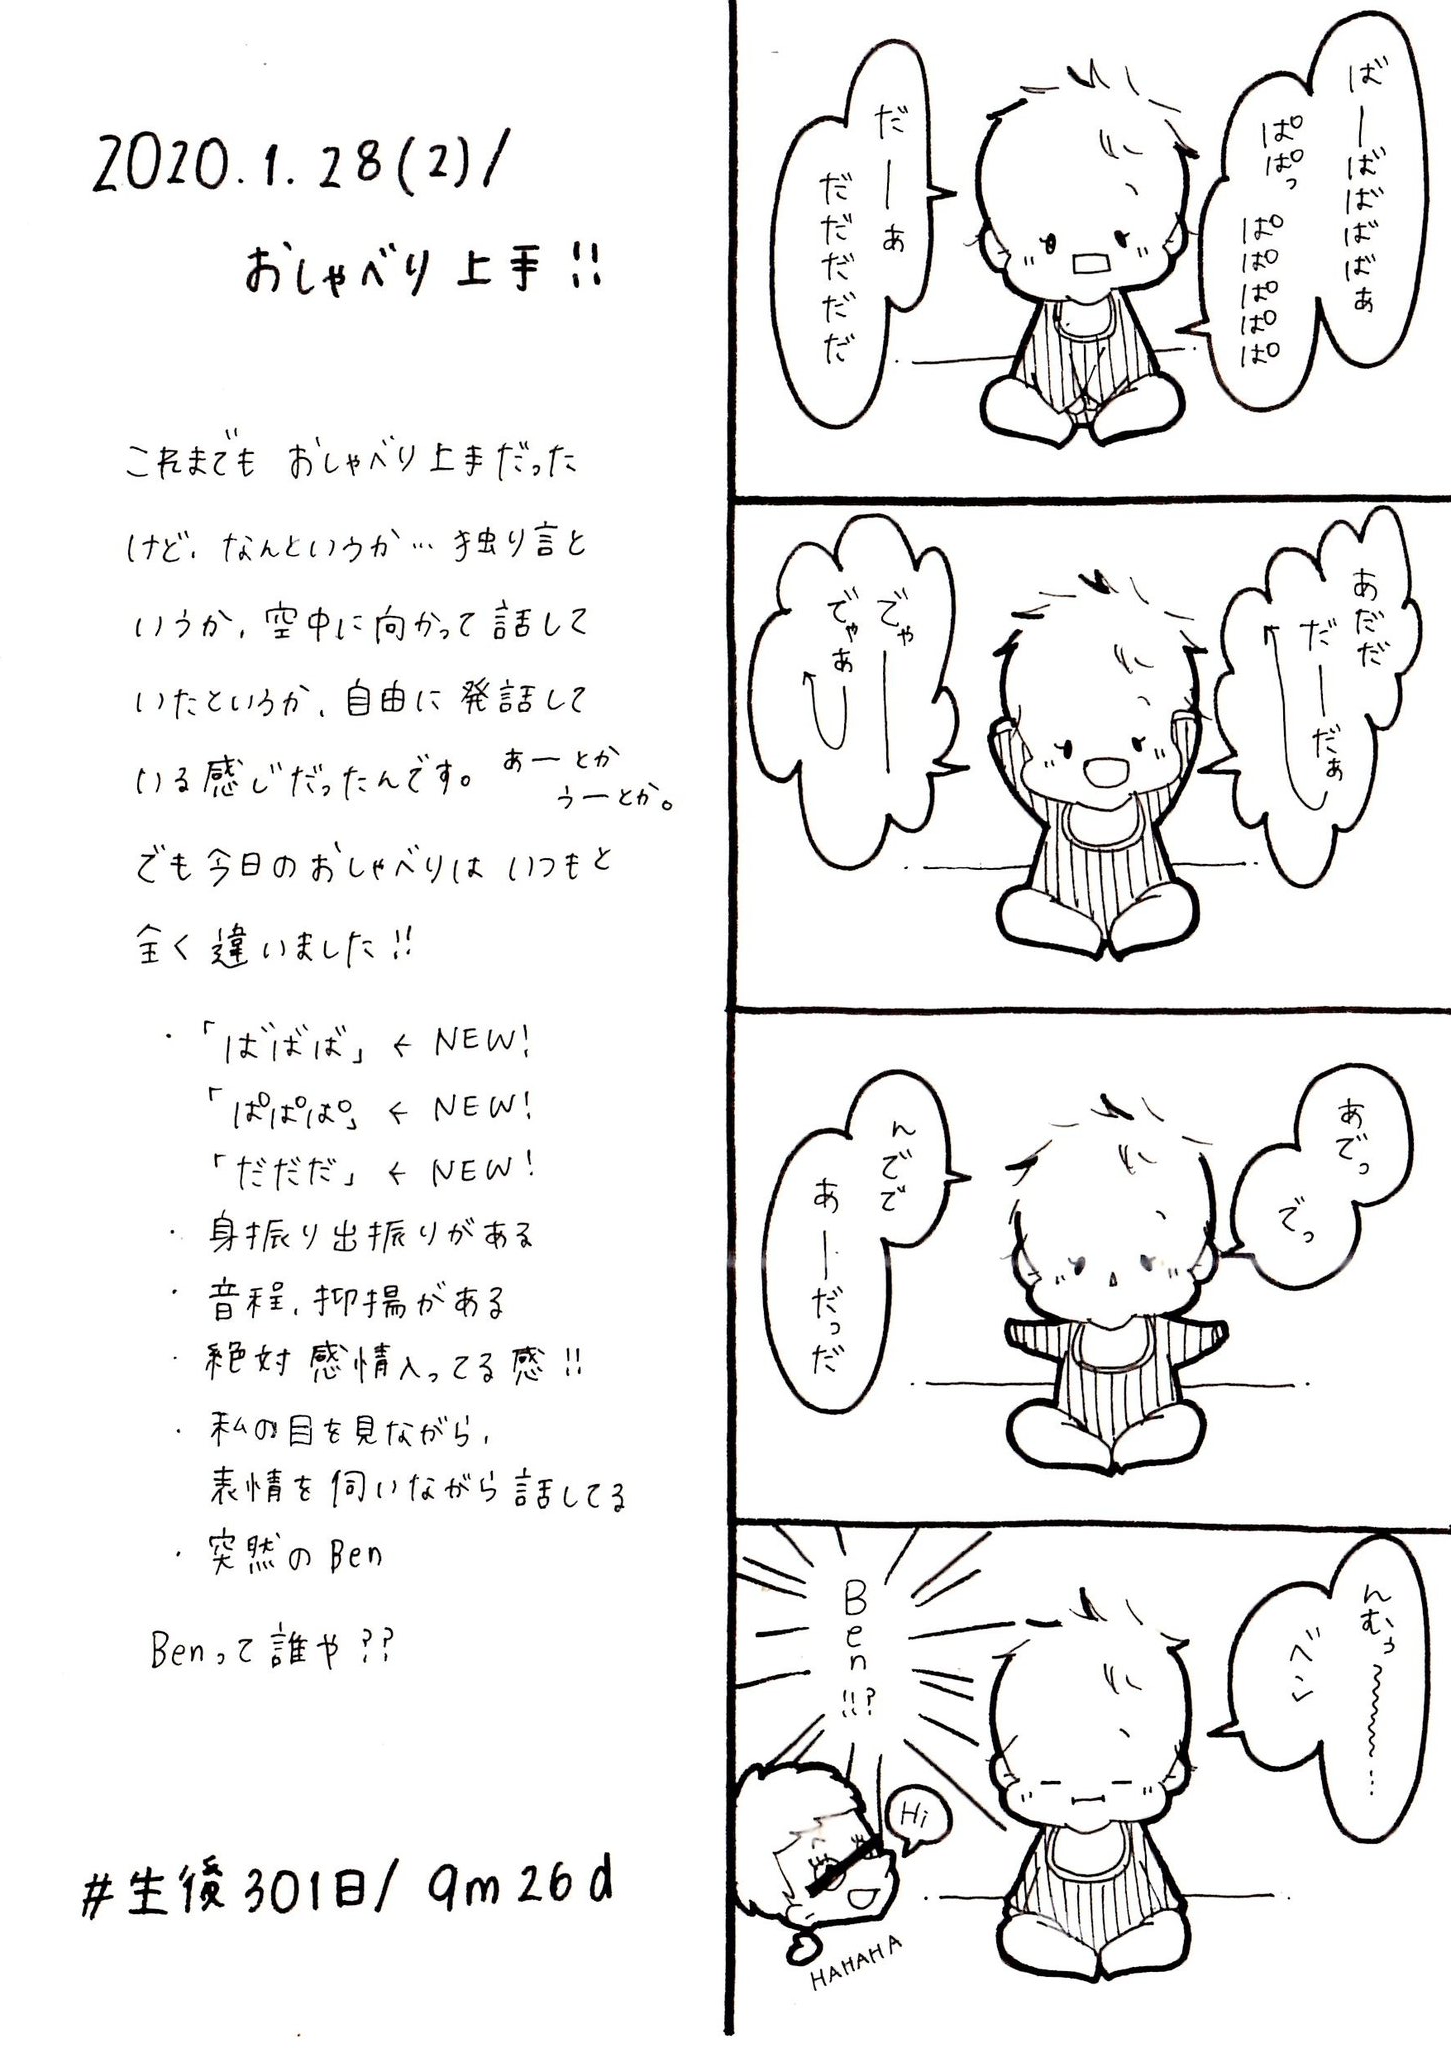 2020.1.28(2)/
おしゃべり上手!!
これまでも おしゃべり上手だった
けど、なんというか…独り言と
いうか、空中に向かって話して
いたというか、自由に発話して
いる感じだったんです。あーとか
うーとか。
でも今日のおしゃべりは いつもと
全く違いました!!
・「ばばば」← NEW!
「ぱぱぱ」← NEW!
「だだだ」← NEW!
・身振り出振りがある
・音程、抑揚がある
・絶対感情入ってる感!!
・私の目を見ながら、
表情を伺いながら話してる
・突然のBen
Benって誰や??
#生後301日/ 9m26d
ばーばばばばぁ
ぱぱっ
ぱぱぱぱぱ
だーぁ
だだだだだ
あだだ
だーだぁ
でゃー
でゃぁー
あでっ
でっ
んでで
あーだっだ
んむぅ〜〜〜…
ベン
Ben!!?
Hi
HAHAHA